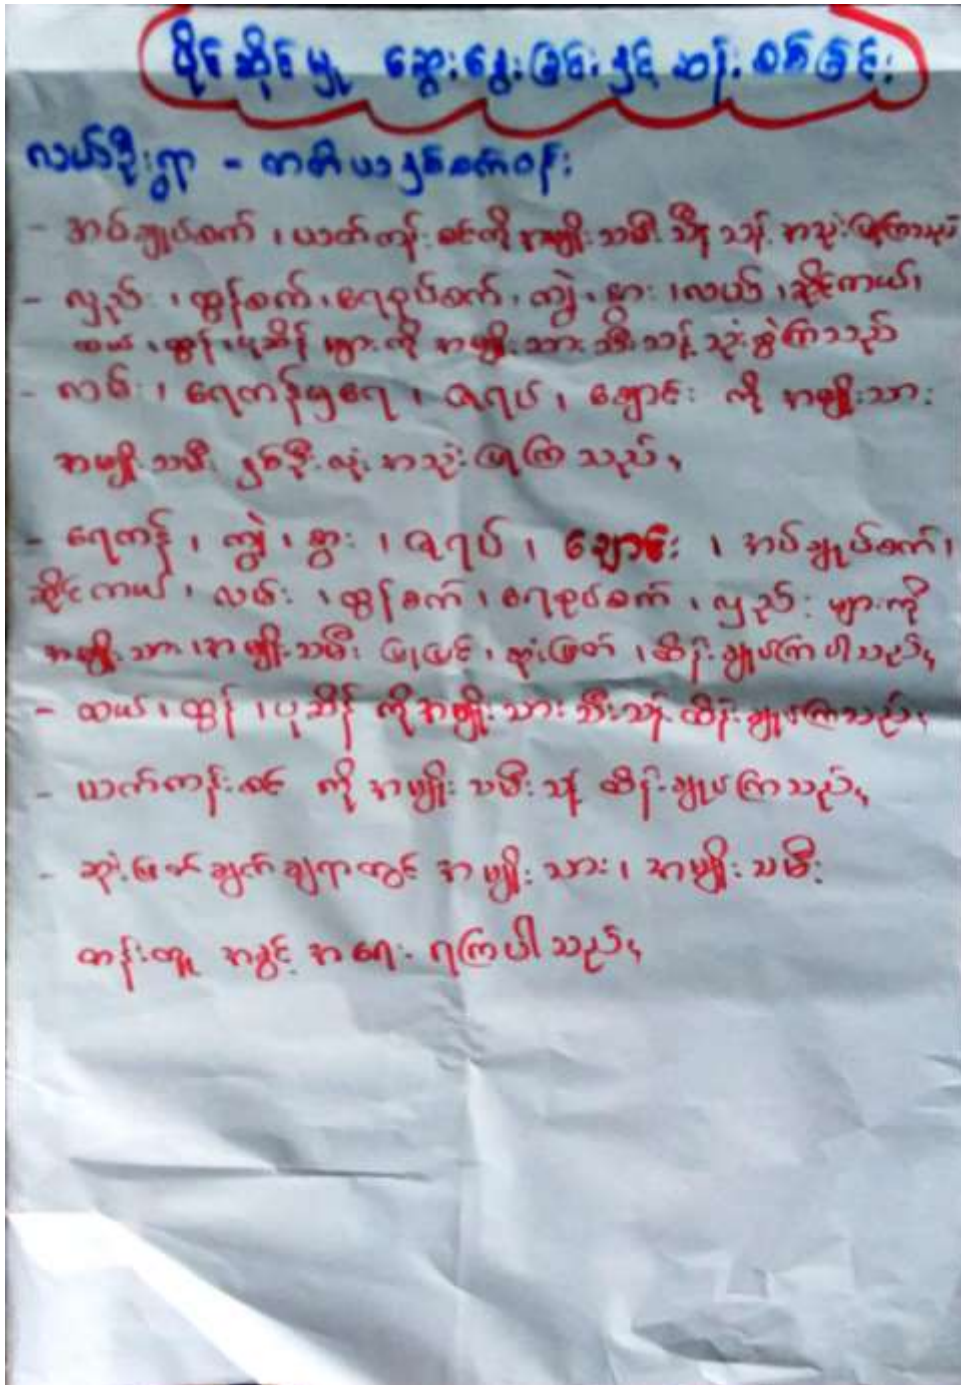 ပိုင်ဆိုင်မှု ဆွေးနွေးခြင်းနှင့် ဆန်းစစ်ခြင်း
လယ်ဦးရွာ - တတိယနှစ်စက်ဝန်း
- အပ်ချုပ်စက်၊ ယက်ကန်းစင်ကို အမျိုးသမီး သီးသန့် အသုံးပြုကြသည်
- လှည်း၊ ထွန်စက်၊ ရေစုပ်စက်၊ ကျွဲ၊ နွား၊ လယ်၊ ဆိုင်ကယ်၊
ထယ်၊ ထွန်၊ ပုဆိန် များကို အမျိုးသား သီးသန့် သုံးစွဲကြသည်
- လမ်း၊ ရေကန်မှရေ၊ ဇရပ်၊ ချောင်း ကို အမျိုးသား
အမျိုးသမီး နှစ်ဦးလုံး အသုံးပြုကြသည်။
- ရေကန်၊ ကျွဲ၊ နွား၊ ဇရပ်၊ ချောင်း၊ အပ်ချုပ်စက်၊
ဆိုင်ကယ်၊ လမ်း၊ ထွန်စက်၊ ရေစုပ်စက်၊ လှည်း များကို
အမျိုးသား၊ အမျိုးသမီး ပြုပြင်၊ ဆုံးဖြတ်၊ ထိန်းချုပ်ကြပါသည်။
- ထယ်၊ ထွန်၊ ပုဆိန် ကို အမျိုးသား သီးသန့် ထိန်းချုပ်ကြသည်။
- ယက်ကန်းစင် ကို အမျိုးသမီးသန့် ထိန်းချုပ်ကြသည်။
- ဆုံးဖြတ်ချက်ချရာတွင် အမျိုးသား၊ အမျိုးသမီး
တန်းတူ အခွင့်အရေး ရကြပါသည်။